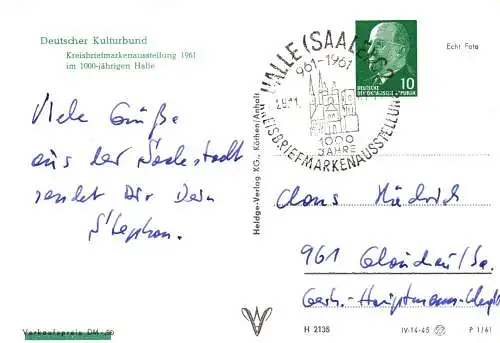 Deutscher Kulturbund
Kreisbriefmarkenausstellung 1961
im 1000-jährigen Halle
Viele Grüße
aus der Saalestadt
sendet Dir Dein
Stephan.
Verkaufspreis DM
Heldge-Verlag KG., Köthen/Anhalt
HALLE (SAALE)
961-1961
1000
JAHRE
KREISBRIEFMARKENAUSSTELLUNG
DEUTSCHE
10
Echt Foto
Claus
961 Glauchau/Sa.
Gerh.-Hauptmann-
H 2135
IV-14-45
P 1/61